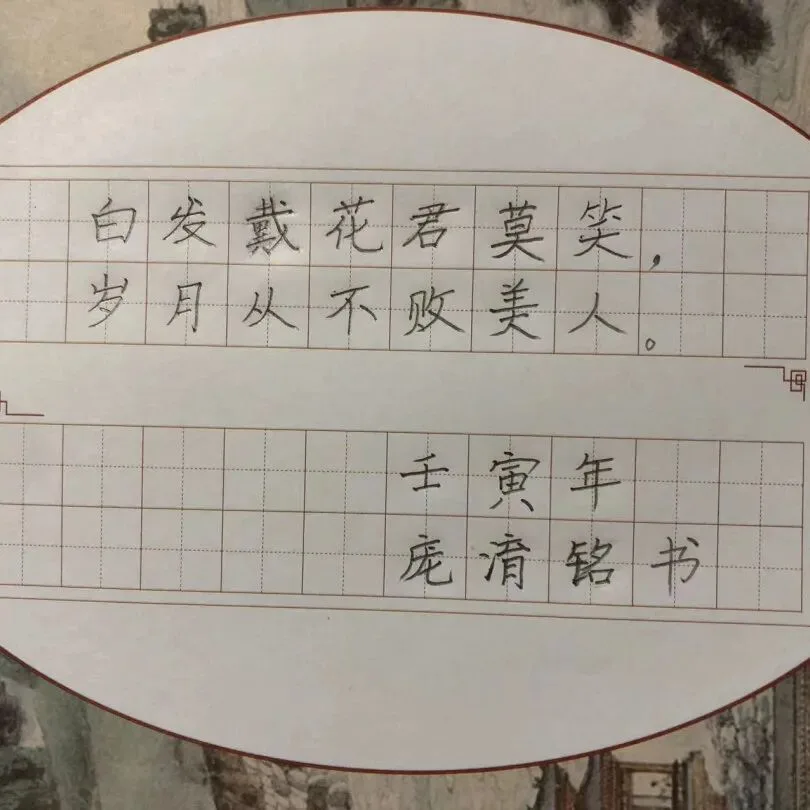 白发戴花君莫笑，
岁月从不败美人。
壬寅年
庞淯铭书